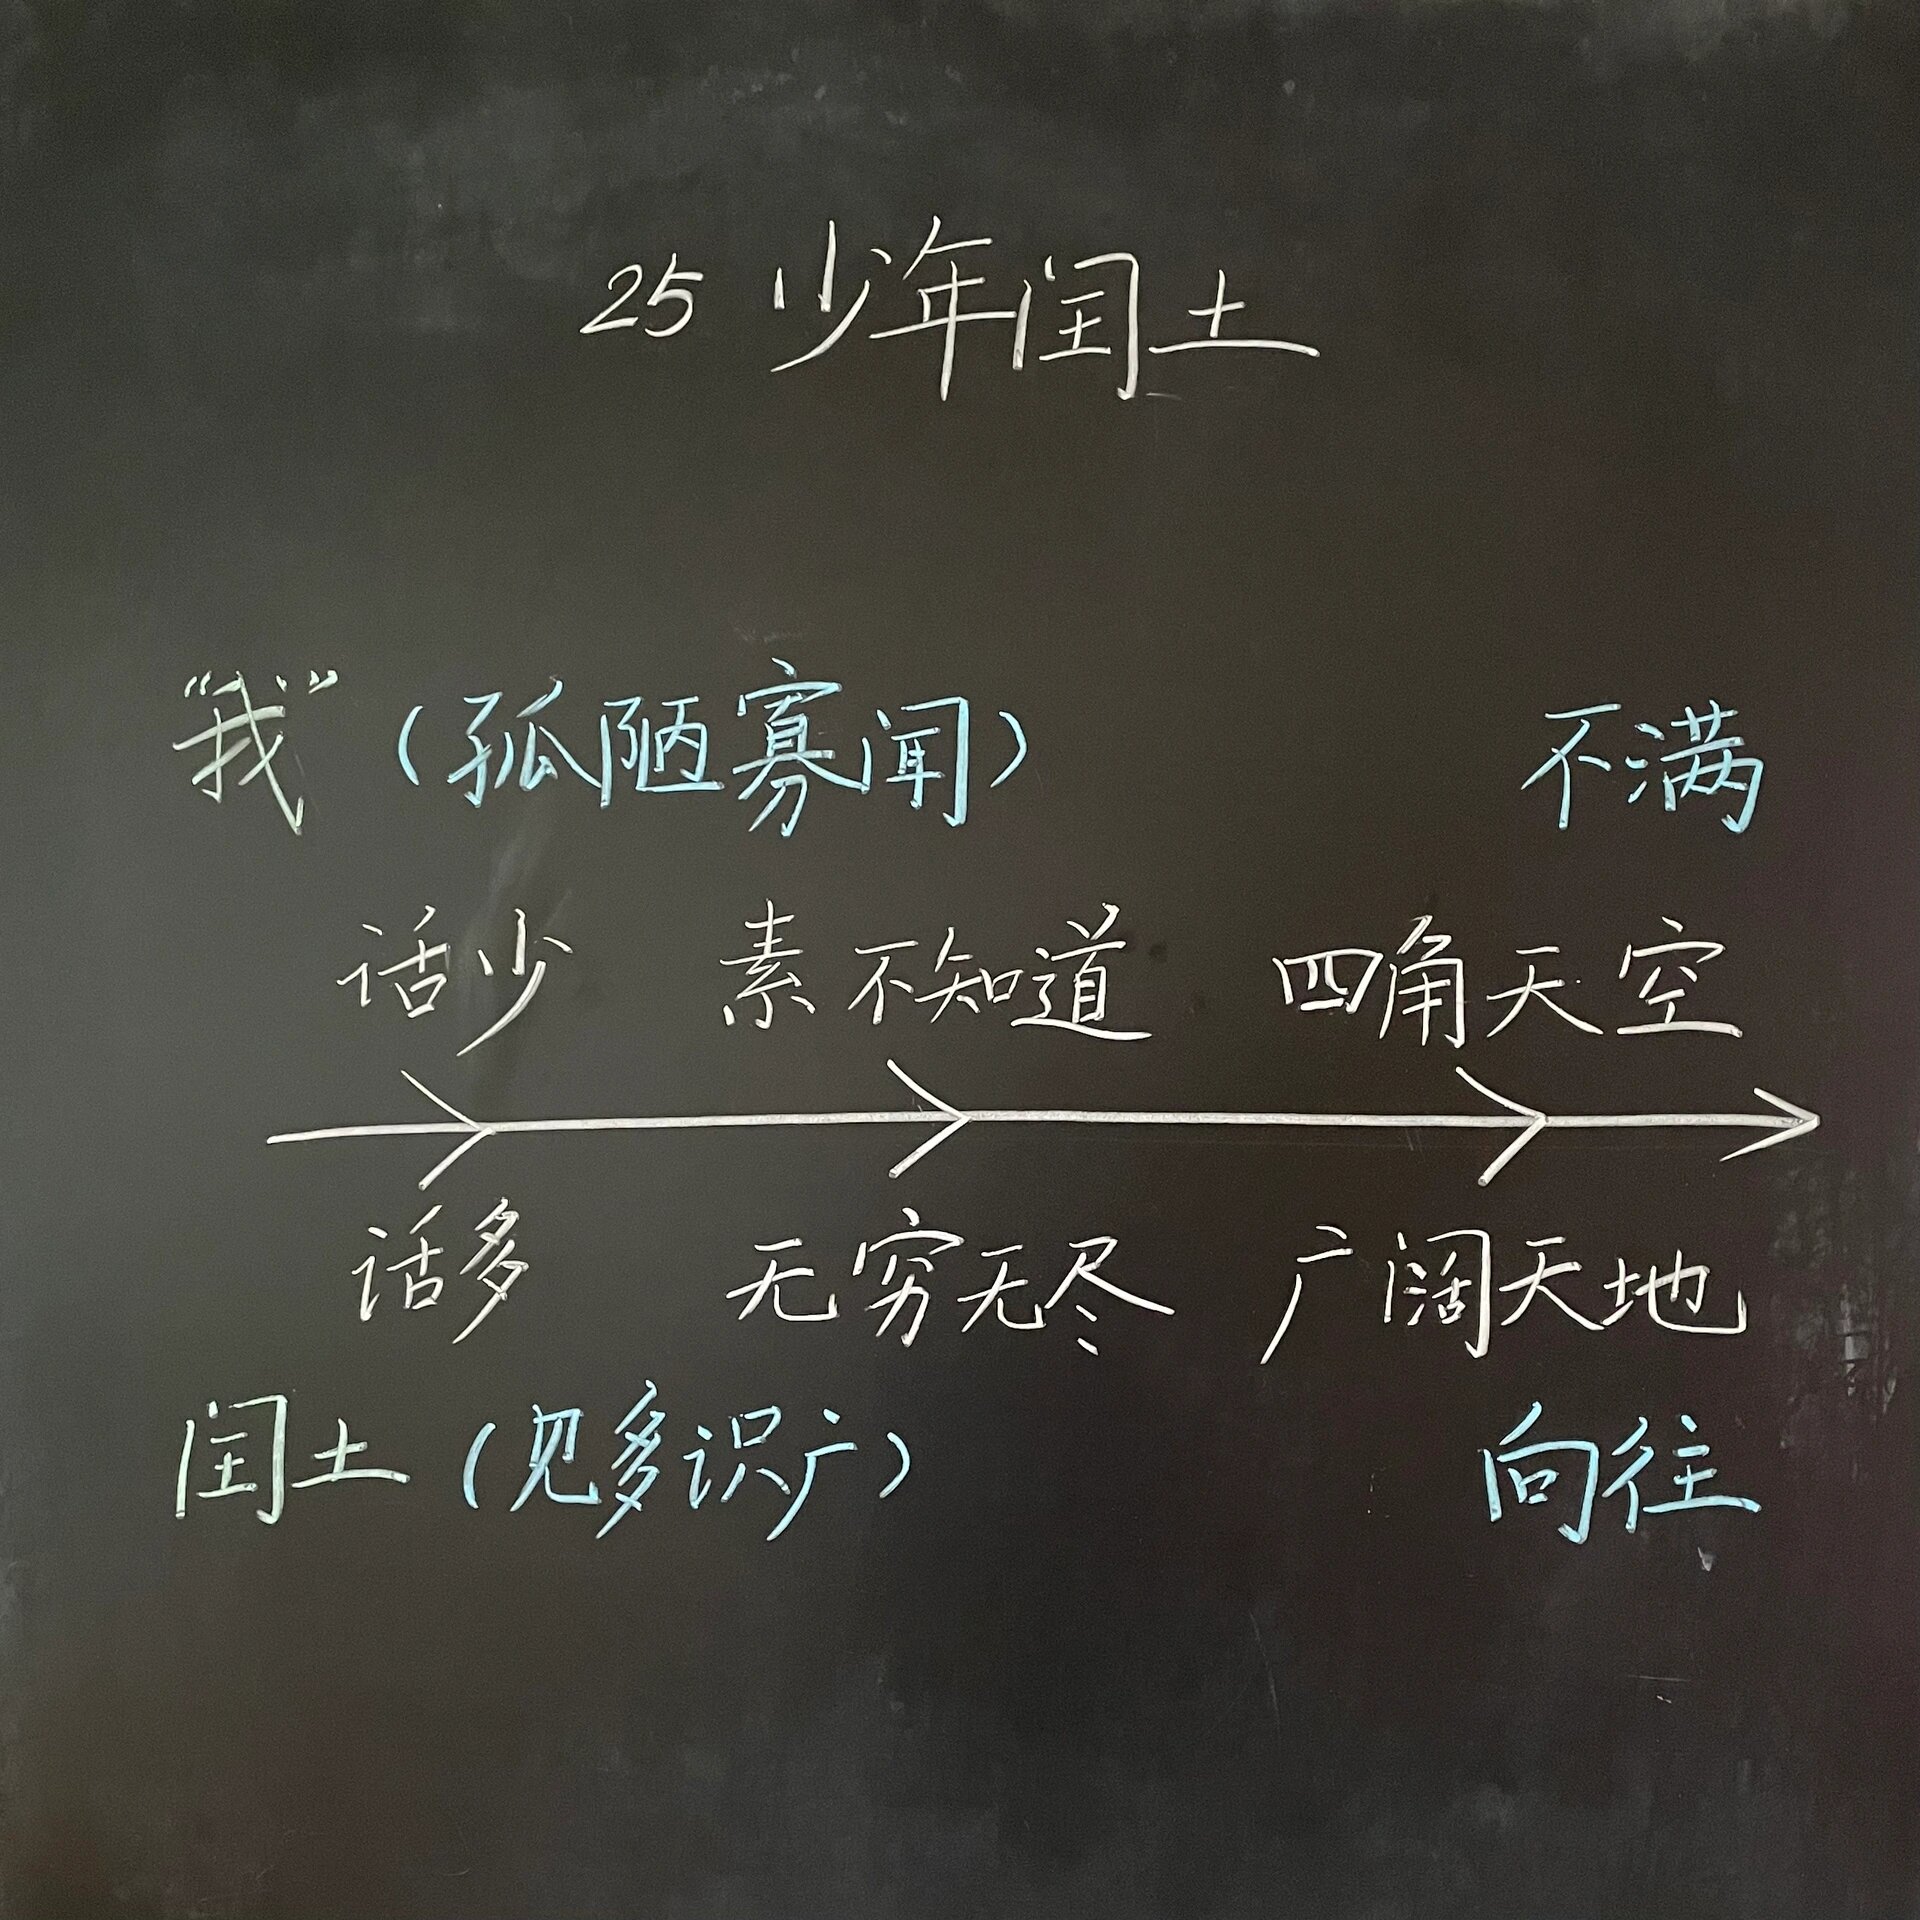 25 少年闰土
“我”（孤陋寡闻） 不满
话少 素不知道 四角天空
话多 无穷无尽 广阔天地
闰土（见多识广） 向往